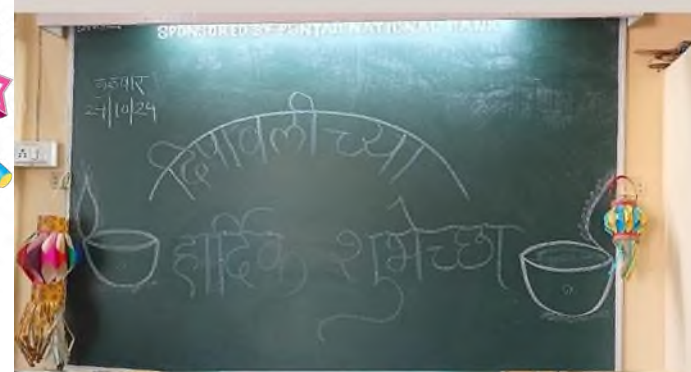 SPONSORED BY PUNJAB NATIONAL BANK
गुरुवार
24|10|24
दिपावलीच्या
हार्दिक शुभेच्छा